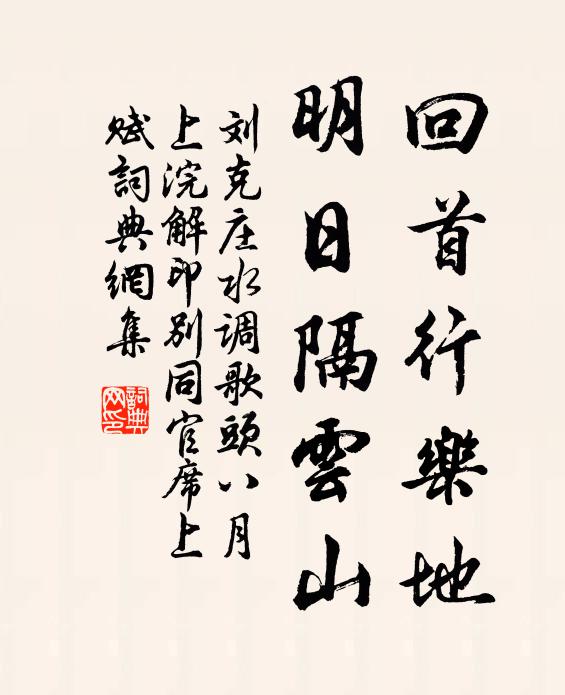 回首行樂地
明日隔雲山
刘克庄水调歌頭八月
上浣解印別同官席上
賦詞典網集
詞典网印